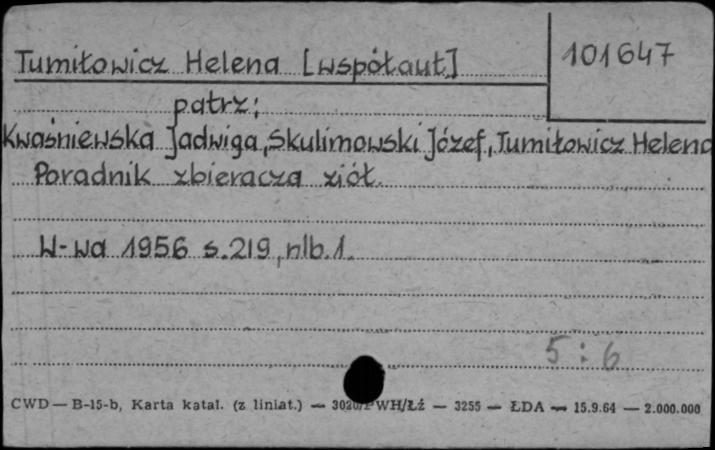 101647
Tumiłowicz Helena [współaut]
patrz:
Kwaśniewska Jadwiga, Skulimowski Józef, Tumiłowicz Helena
Poradnik zbieracza ziół.
W-wa 1956 s.219, nlb.1.
5:6
CWD — B-15-b, Karta katal. (z liniat.) — 3020/PWH/Łź — 3255 — ŁDA — 15.9.64 — 2.000.000